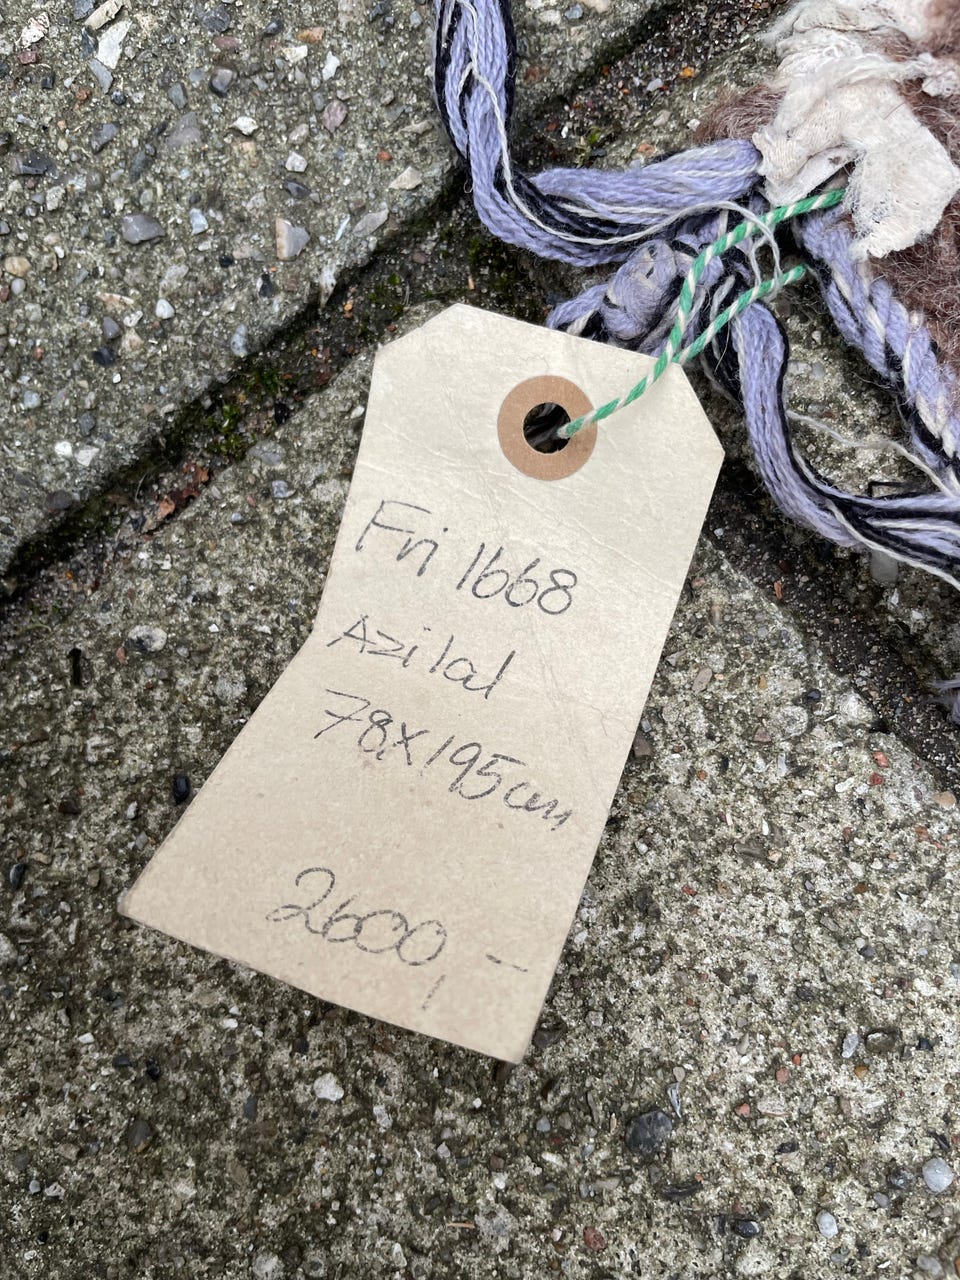 Fri 1668
Azilal
78X195cm
2600,-